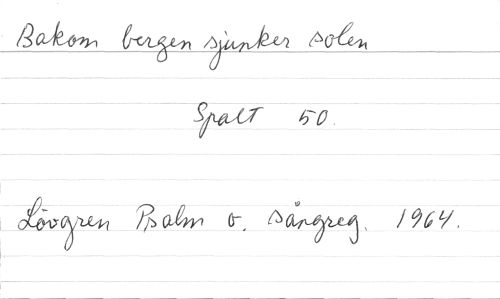 Bakom bergen sjunker solen
Spalt 50.
Lövgren Psalm o. sångreg. 1964.